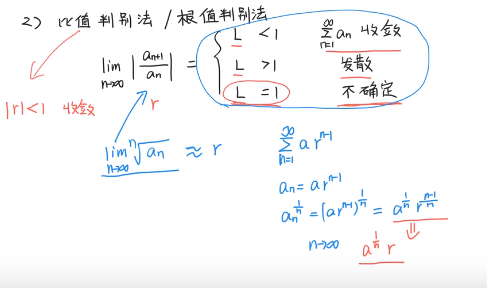 2) 比值判别法 / 根值判别法
lim n→∞ |aₙ₊₁/aₙ| = { L < 1 ∑_{n=1}^{∞} aₙ 收敛
L > 1 发散
L = 1 不确定
|r|<1 收敛
r
lim n→∞ ⁿ√aₙ ≈ r
∑_{n=1}^{∞} a r^{n-1}
aₙ = a r^{n-1}
aₙ^{1/n} = (a r^{n-1})^{1/n} = a^{1/n} r^{(n-1)/n}
n→∞ a^{1/n} r